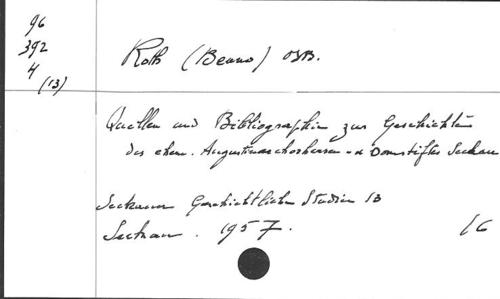 96
392
4
(13)
Roth (Benno) OSB.
Quellen und Bibliographie zur Geschichte
des ehem. Augustinerchorherren- u Domstiftes Seckau
Seckauer Geschichtliche Studien 13
Seckau. 1957.
16